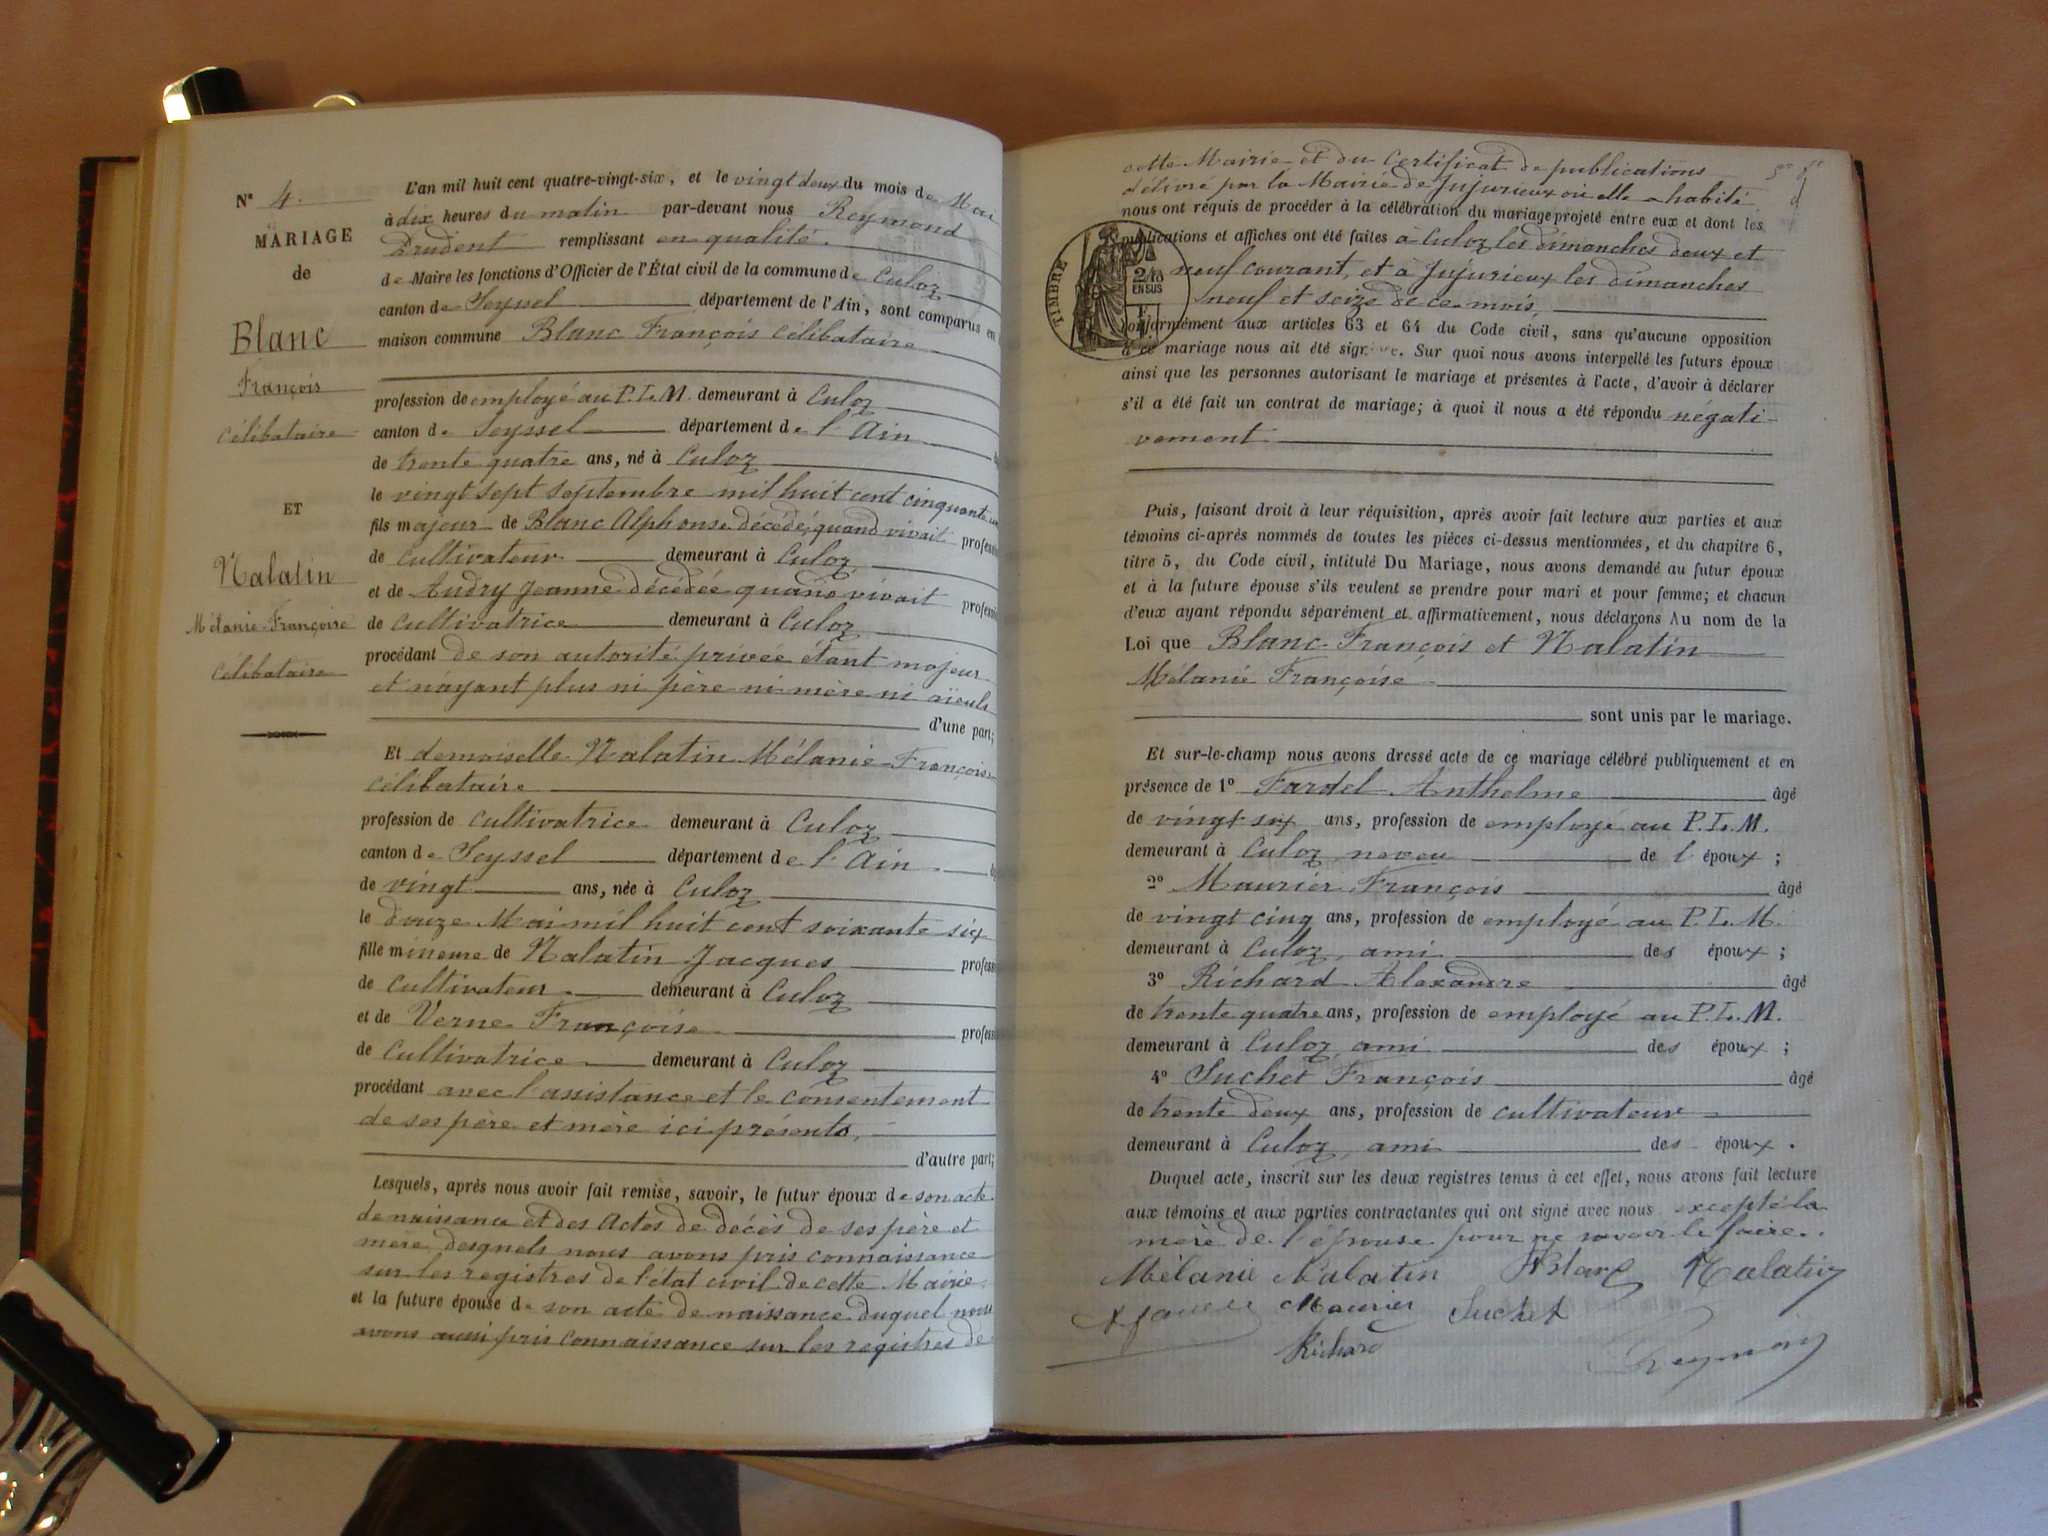 N° 4.
MARIAGE
de
Blanc
François
célibataire
ET
Nalatin
Mélanie Françoise
célibataire
L'an mil huit cent quatre-vingt-six, et le vingt deux du mois de Mai
à dix heures du matin par-devant nous Reymond
Prudent remplissant en qualité
de Maire les fonctions d'Officier de l'État civil de la commune de Culoz
canton de Seyssel département de l'Ain, sont comparus en
maison commune Blanc François célibataire
profession de employé au P.L.M. demeurant à Culoz
canton de Seyssel département de l'Ain
de trente quatre ans, né à Culoz
le vingt sept septembre mil huit cent cinquante un
fils majeur de Blanc Alphonse décédé, quand vivait profession
de cultivateur demeurant à Culoz
et de Audry Jeanne décédée quand vivait profession
de cultivatrice demeurant à Culoz
procédant de son autorité privée étant majeur
et n'ayant plus ni père ni mère ni aïeuls
d'une part;
Et demoiselle Nalatin Mélanie Françoise
célibataire
profession de cultivatrice demeurant à Culoz
canton de Seyssel département de l'Ain
de vingt ans, née à Culoz
le douze Mai mil huit cent soixante six
fille mineure de Nalatin Jacques profess
de cultivateur demeurant à Culoz
et de Verne Françoise profess
de cultivatrice demeurant à Culoz
procédant avec l'assistance et le consentement
de ses père et mère ici présents,
d'autre part;
Lesquels, après nous avoir fait remise, savoir, le futur époux de son acte
de naissance et des Actes de décès de ses père et
mère desquels nous avons pris connaissance
sur les registres de l'état civil de cette Mairie
et la future épouse de son acte de naissance duquel nous
avons aussi pris connaissance sur les registres de
cette Mairie et du Certificat de publications
délivré par la Mairie de Jujurieux où elle a habité
nous ont requis de procéder à la célébration du mariage projeté entre eux et dont les
publications et affiches ont été faites à Culoz les dimanches deux et
neuf courant, et à Jujurieux les dimanches
neuf et seize de ce mois,
TIMBRE
2/10
EN SUS
conformément aux articles 63 et 64 du Code civil, sans qu'aucune opposition
à ce mariage nous ait été signifiée. Sur quoi nous avons interpellé les futurs époux
ainsi que les personnes autorisant le mariage et présentes à l'acte, d'avoir à déclarer
s'il a été fait un contrat de mariage; à quoi il nous a été répondu négati-
vement
Puis, faisant droit à leur réquisition, après avoir fait lecture aux parties et aux
témoins ci-après nommés de toutes les pièces ci-dessus mentionnées, et du chapitre 6,
titre 5, du Code civil, intitulé Du Mariage, nous avons demandé au futur époux
et à la future épouse s'ils veulent se prendre pour mari et pour femme; et chacun
d'eux ayant répondu séparément et affirmativement, nous déclarons Au nom de la
Loi que Blanc François et Nalatin
Mélanie Françoise
sont unis par le mariage.
Et sur-le-champ nous avons dressé acte de ce mariage célébré publiquement et en
présence de 1° Fardel Anthelme âgé
de vingt six ans, profession de employé au P.L.M.
demeurant à Culoz neveu de l'époux;
2° Maurier François âgé
de vingt cinq ans, profession de employé au P.L.M.
demeurant à Culoz, ami des époux;
3° Richard Alexandre âgé
de trente quatre ans, profession de employé au P.L.M.
demeurant à Culoz, ami des époux;
4° Suchet François âgé
de trente deux ans, profession de cultivateur
demeurant à Culoz, ami des époux.
Duquel acte, inscrit sur les deux registres tenus à cet effet, nous avons fait lecture
aux témoins et aux parties contractantes qui ont signé avec nous excepté la
mère de l'épouse pour ne savoir le faire.
Mélanie Nalatin Blanc Nalatin
Maurier Suchet
Richard Reymond